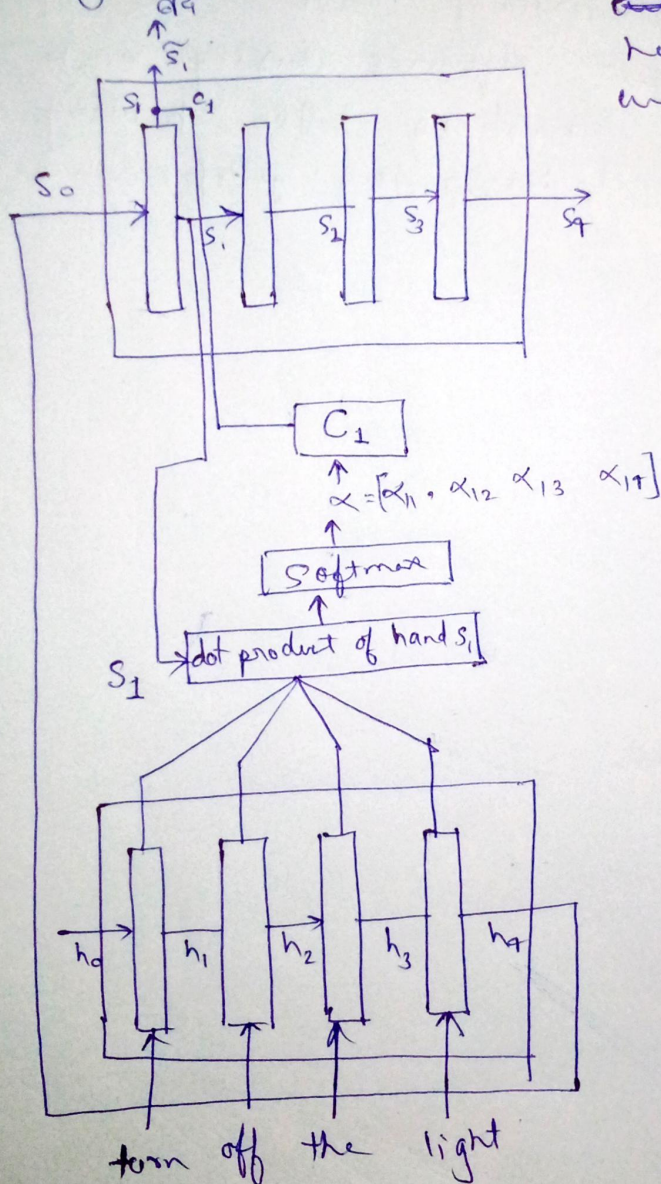 S̃₁
S₁ C₁
S₀
S₁ S₂ S₃ S₄
C₁
α=[α₁₁, α₁₂ α₁₃ α₁₄]
Softmax
dot product of h and S₁
S₁
h₀ h₁ h₂ h₃ h₄
turn off the light